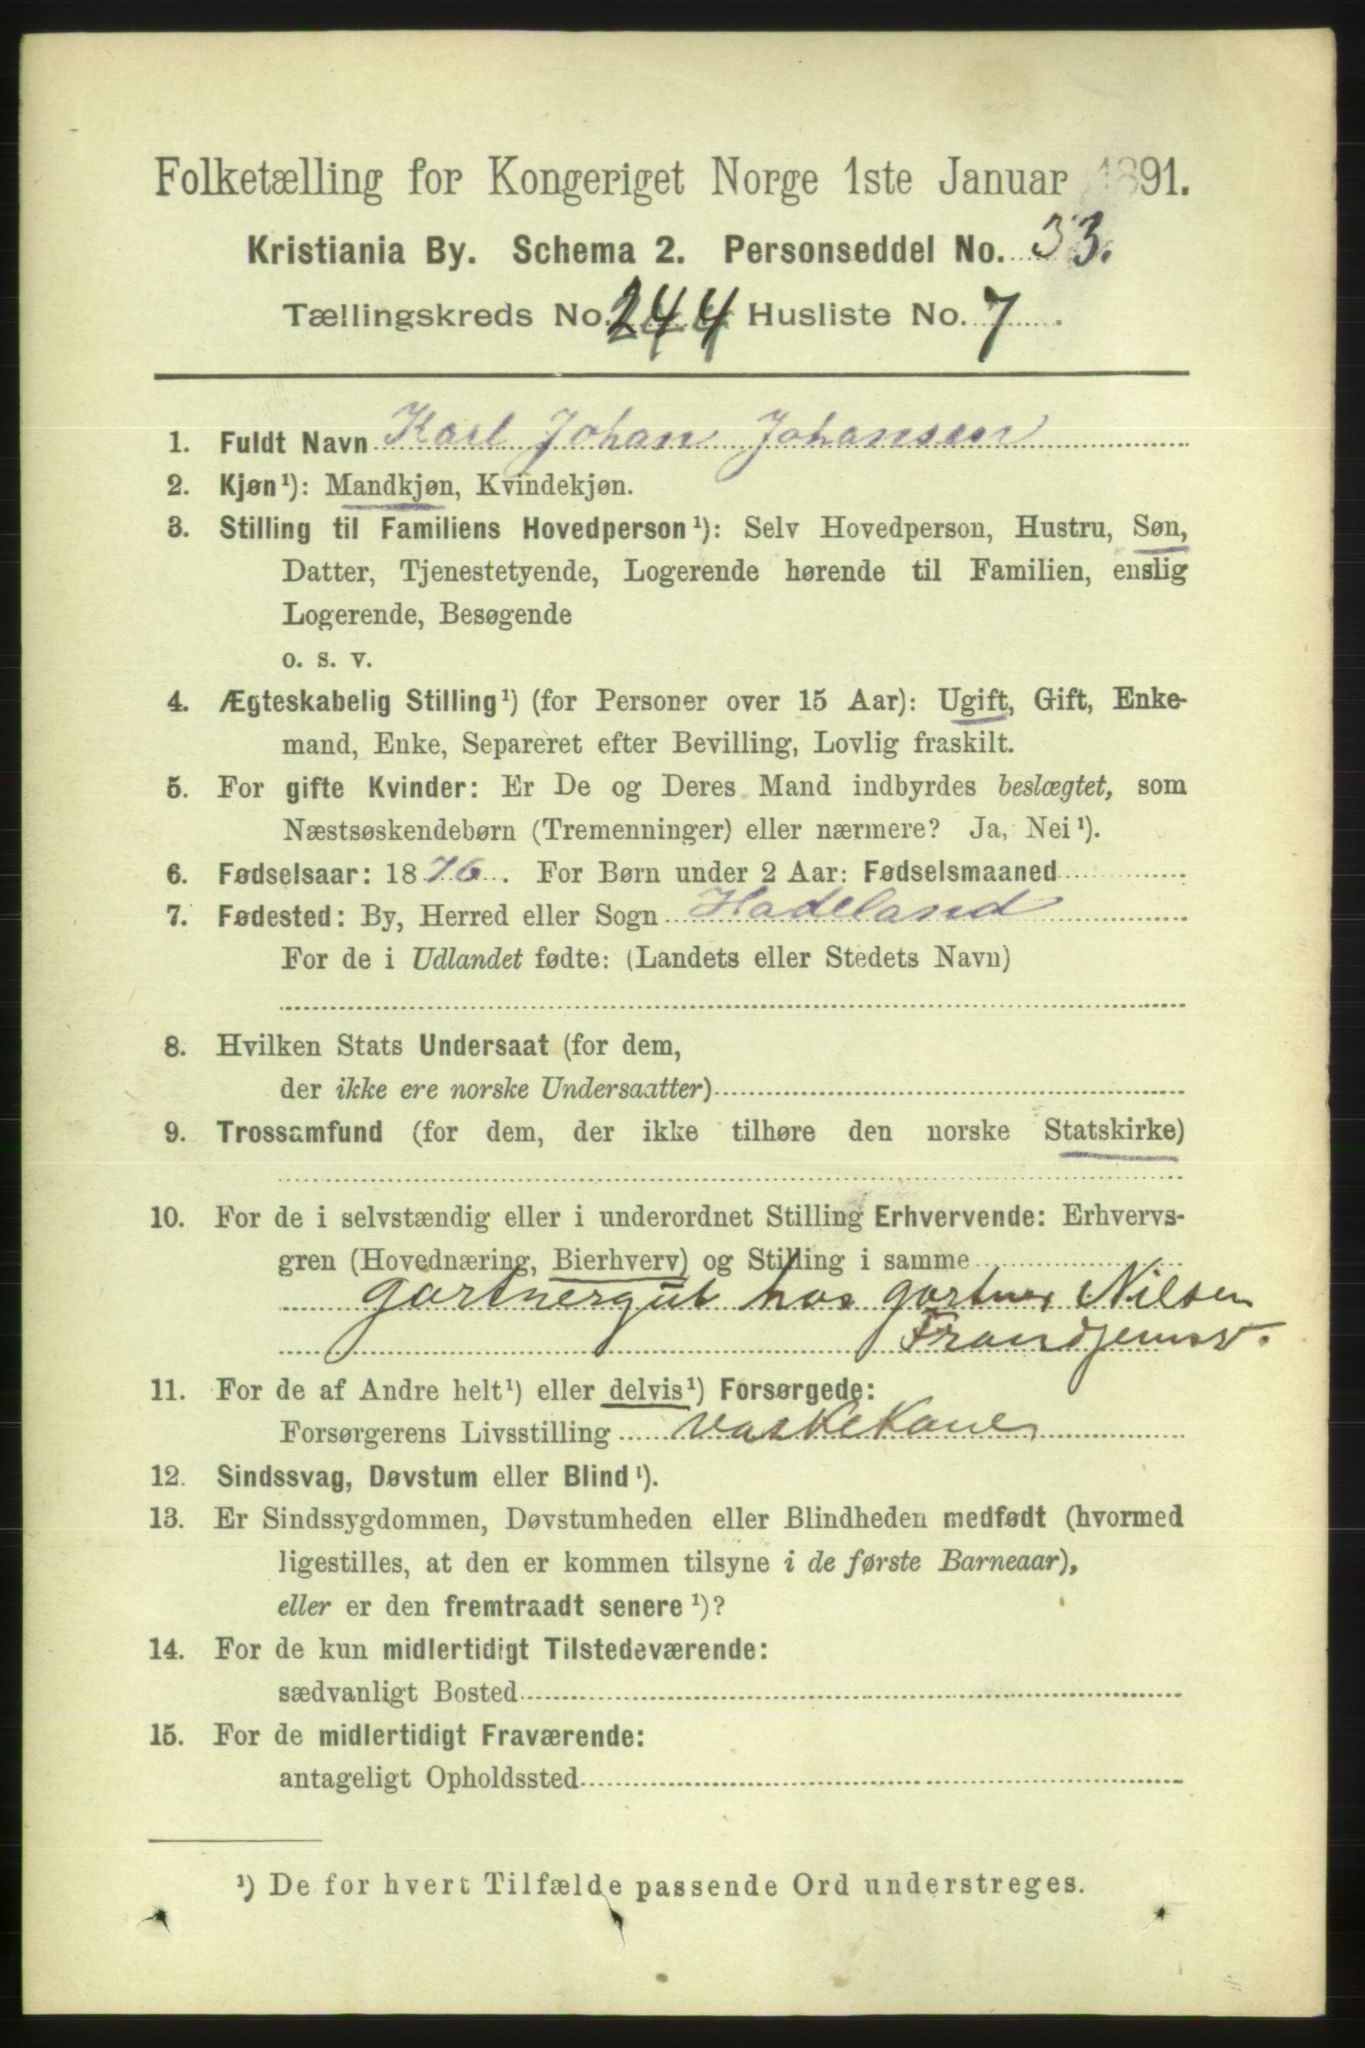 Folketælling for Kongeriget Norge 1ste Januar 1891.
Kristiania By. Schema 2. Personseddel No. 33.
Tællingskreds No. 244 Husliste No. 7.
1. Fuldt Navn Karl Johan Johansen
2. Kjøn¹): Mandkjøn, Kvindekjøn.
3. Stilling til Familiens Hovedperson¹): Selv Hovedperson, Hustru, Søn,
Datter, Tjenestetyende, Logerende hørende til Familien, enslig
Logerende, Besøgende
o. s. v.
4. Ægteskabelig Stilling¹) (for Personer over 15 Aar): Ugift, Gift, Enke-
mand, Enke, Separeret efter Bevilling, Lovlig fraskilt.
5. For gifte Kvinder: Er De og Deres Mand indbyrdes beslægtet, som
Næstsøskendebørn (Tremenninger) eller nærmere? Ja, Nei¹).
6. Fødselsaar: 1876. For Børn under 2 Aar: Fødselsmaaned
7. Fødested: By, Herred eller Sogn Hadeland
For de i Udlandet fødte: (Landets eller Stedets Navn)
8. Hvilken Stats Undersaat (for dem,
der ikke ere norske Undersaatter)
9. Trossamfund (for dem, der ikke tilhøre den norske Statskirke)
10. For de i selvstændig eller i underordnet Stilling Erhvervende: Erhvervs-
gren (Hovednæring, Bierhverv) og Stilling i samme
gartnergut hos gartner Nilsen
11. For de af Andre helt¹) eller delvis¹) Forsørgede:
Forsørgerens Livsstilling vaskekone
12. Sindssvag, Døvstum eller Blind¹).
13. Er Sindssygdommen, Døvstumheden eller Blindheden medfødt (hvormed
ligestilles, at den er kommen tilsyne i de første Barneaar),
eller er den fremtraadt senere¹)?
14. For de kun midlertidigt Tilstedeværende:
sædvanligt Bosted
15. For de midlertidigt Fraværende:
antageligt Opholdssted
¹) De for hvert Tilfælde passende Ord understreges.